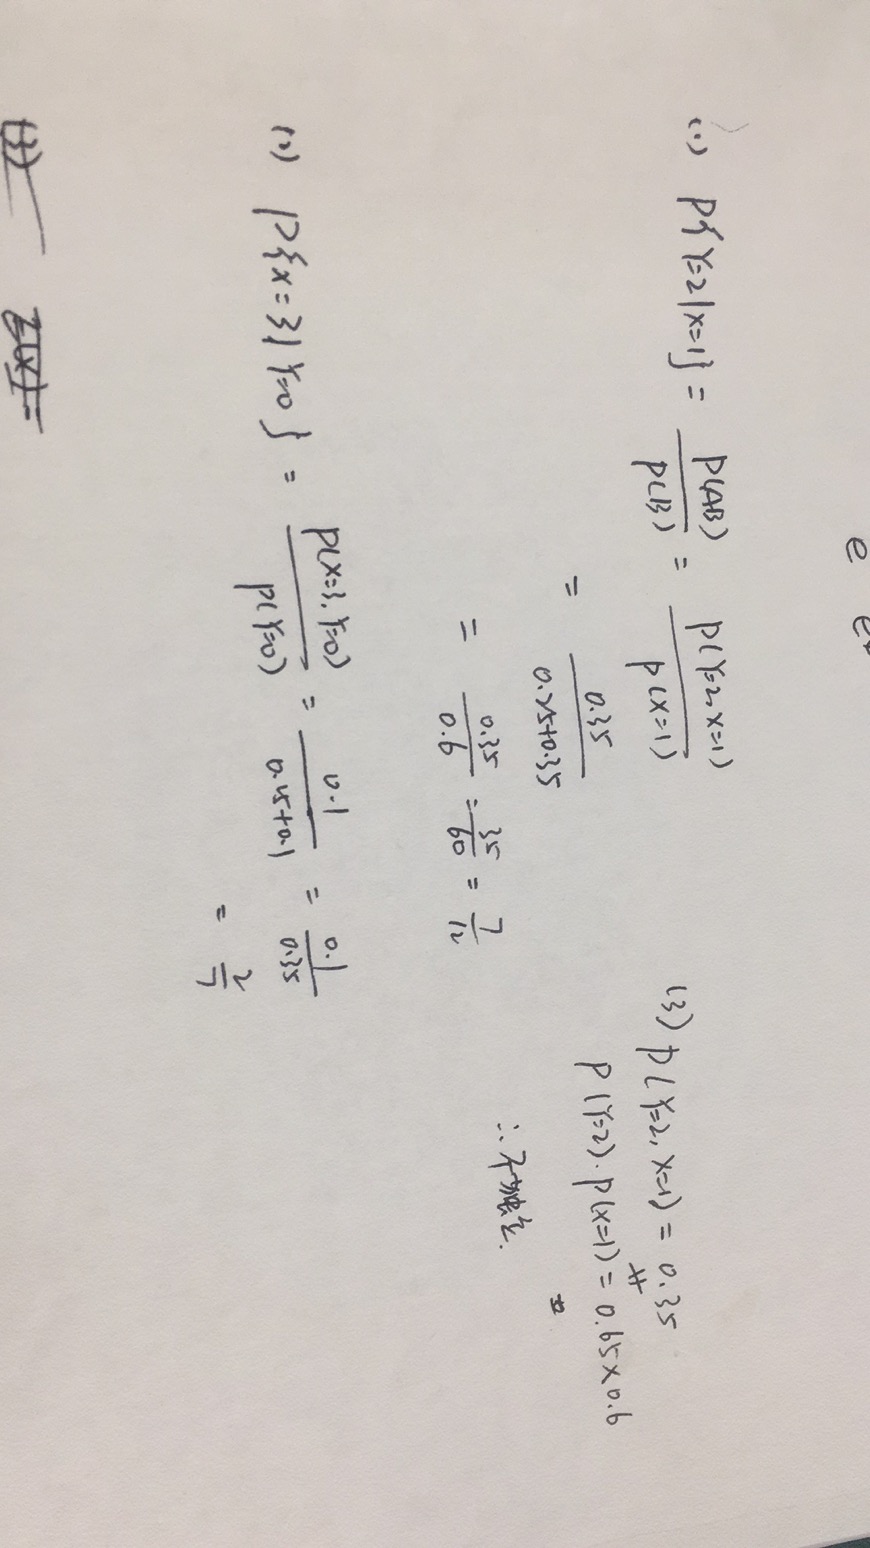 e
(1) P{Y=2|X=1} = P(AB)/P(B) = P(Y=2, X=1)/P(X=1)
= 0.35/(0.25+0.35)
= 0.35/0.6 = 35/60 = 7/12
(2) P{X=3|Y=0} = P(X=3, Y=0)/P(Y=0) = 0.1/(0.25+0.1) = 0.1/0.35
= 2/7
(3) P(Y=2, X=1) = 0.35
≠
P(Y=2)·P(X=1) = 0.65×0.6
∴不独立.
(3)
E(X)=